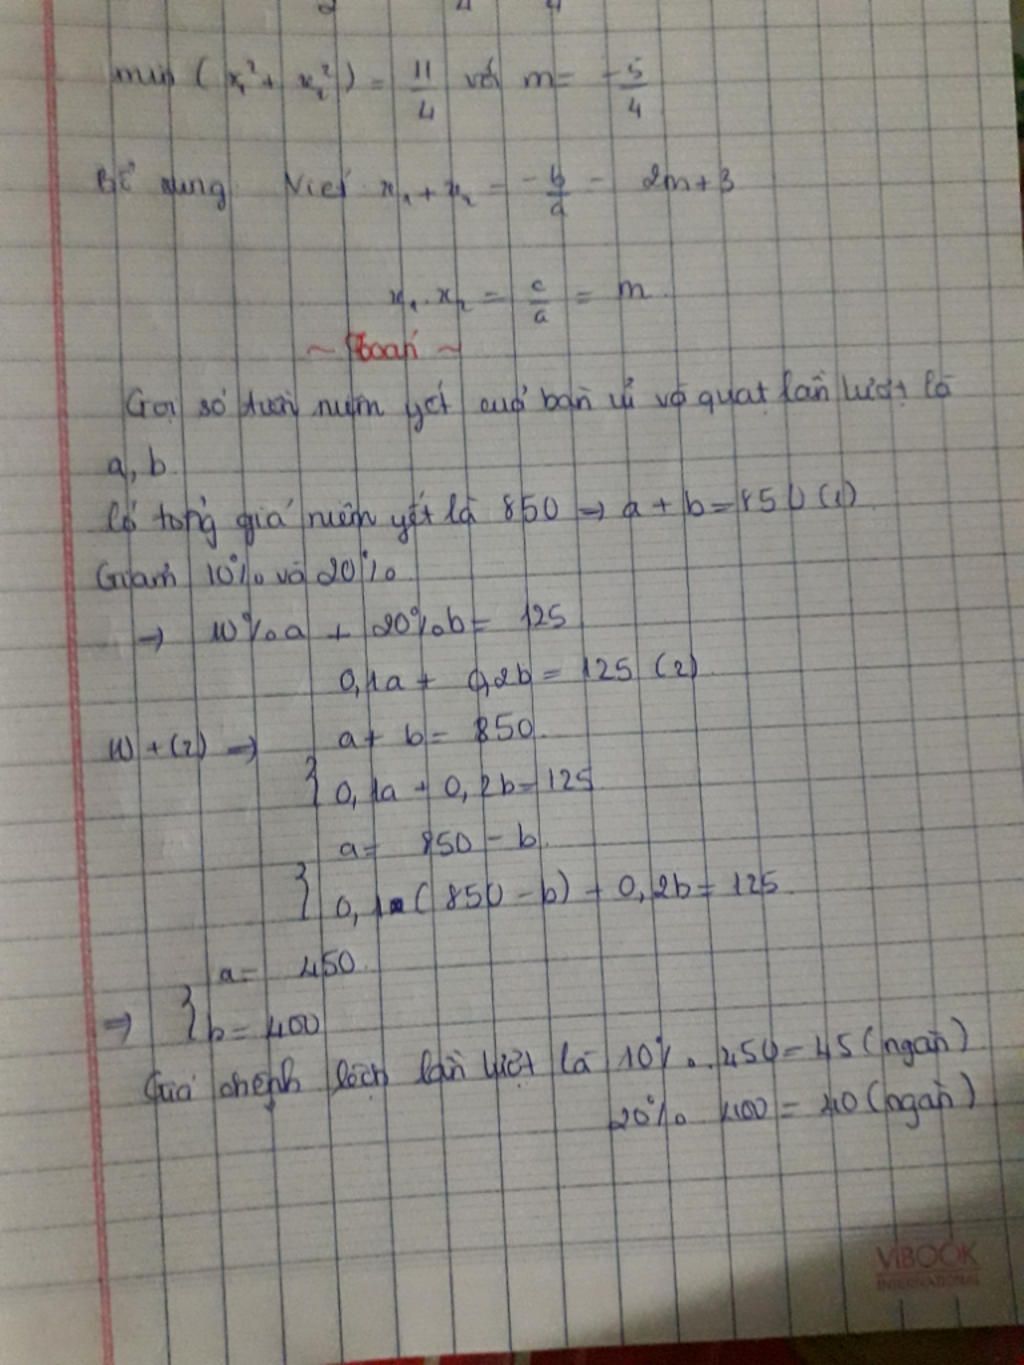 min (x₁² + x₂²) = 11/4 với m = -5/4
Bổ sung Viet x₁ + x₂ = -b/a = 2m+3
x₁. x₂ = c/a = m
~ Toán ~
Gọi số tiền niêm yết của bàn ủi và quạt lần lượt là
a, b
Có tổng giá niêm yết là 850 => a + b = 850 (1)
Giảm 10% và 20%
=> 10%a + 20%b = 125
0,1a + 0,2b = 125 (2)
(1) + (2) => a + b = 850
{ 0,1a + 0,2b = 125
a = 850 - b
{ 0,1 (850 - b) + 0,2b = 125
a = 450
=> { b = 400
Giá chênh lệch lần lượt là 10%. 450 = 45 (ngàn)
20% 400 = 40 (ngàn)
VIBOOK
INTERNATIONAL